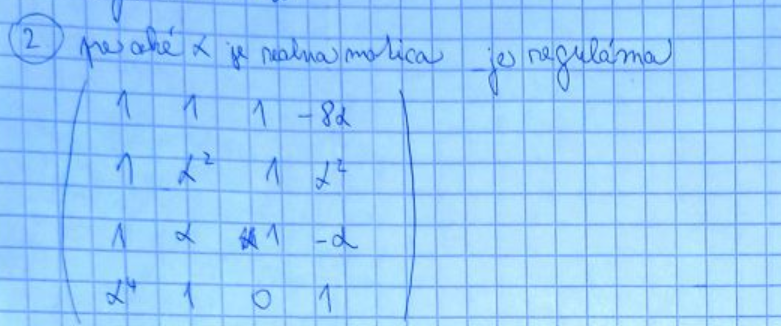 2 pre aké α je reálna matica je regulárna
1 1 1 -8α
1 α² 1 α²
1 α 1 -α
α⁴ 1 0 1